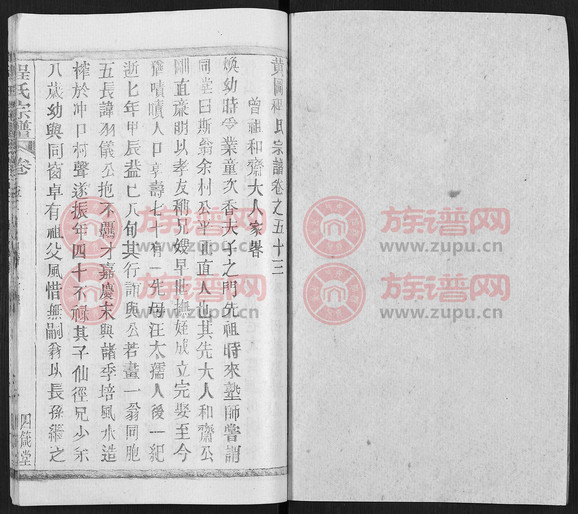 黄岡程氏宗譜卷之五十三
曾祖和齋大人家畧
煥幼時受業童次香夫子之門先祖時來塾師嘗謂
同堂曰斯翁余村公平正直人也其先大人和齋公
剛直廉明以孝友稱兄嫂早逝撫姪成立完娶至今
猶嘖嘖人口享壽七 有一先母汪太孺人後一紀
逝七年甲辰葢已八旬其行誼與公若畫一翁同胞
五長諱羽儀公抱不羈才嘉慶末與諸季培風水造
榨於冲口柯聲遂振年四十不祿其子仙徑兄少采
八歲幼與同窗卓有祖父風惜無嗣翁以長孫繼之
程氏宗譜
卷
四箴堂
族谱网
www.zupu.cn
族谱网
www.zupu.cn
族谱网
www.zupu.cn
族谱网
www.zupu.cn